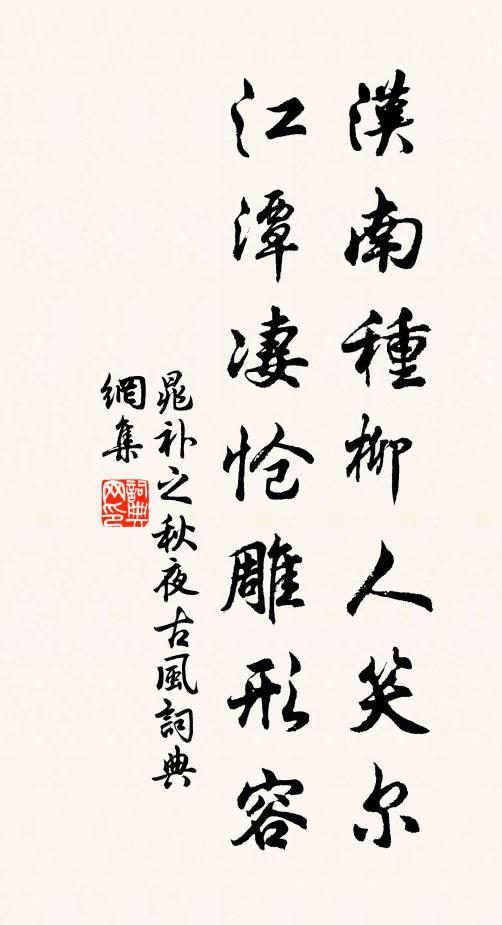 漢南種柳人笑尔
江潭凄怆雕形容
晁补之秋夜古風詞典
網集
詞典网印